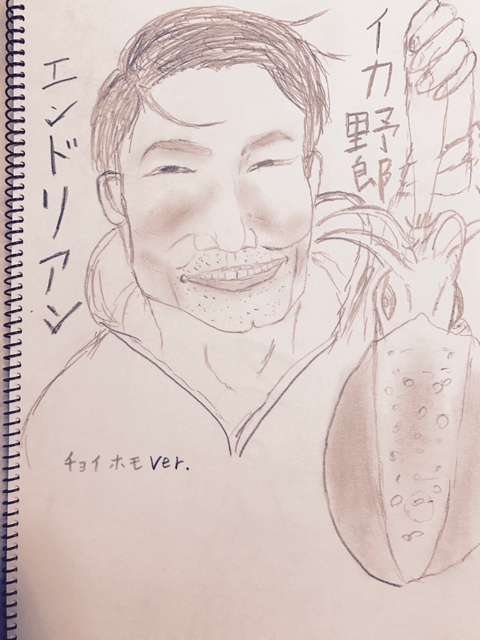 イカ野郎
エンドリアン
チョイホモver.